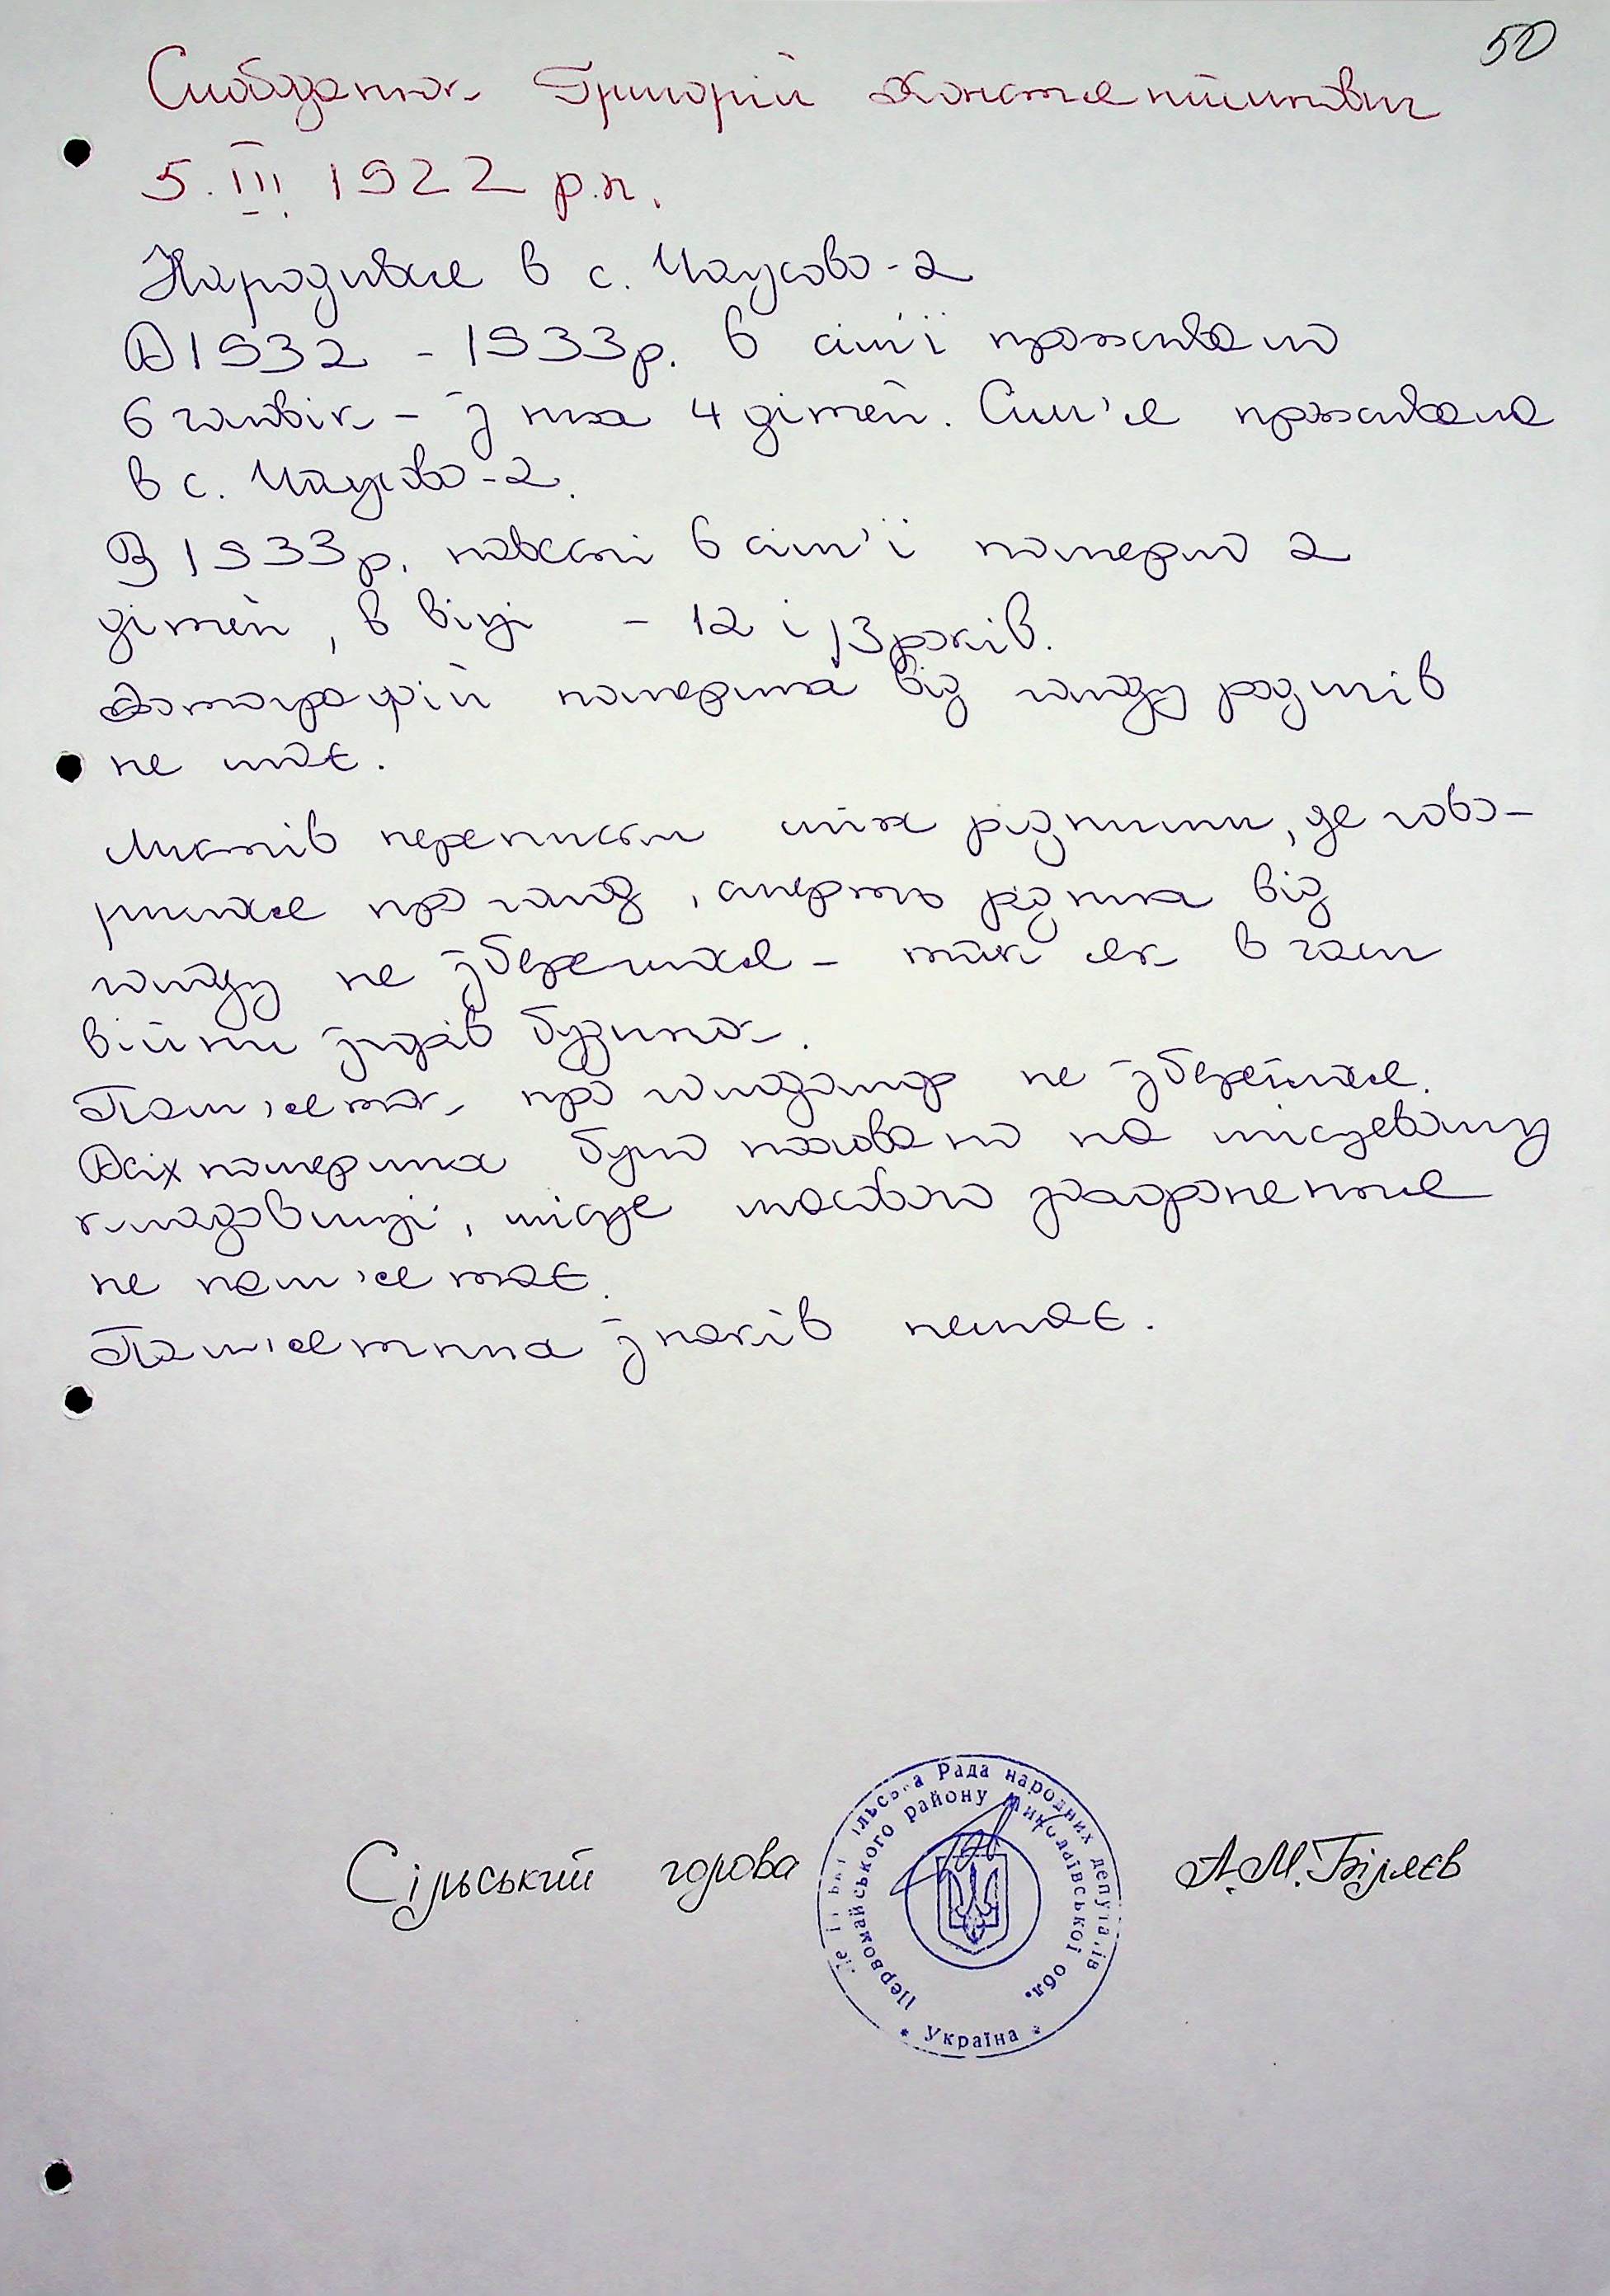 50
Слободянюк Григорій Константинович
5. III. 1922 р.н.
Народився в с. Чаусово-2
В 1932 - 1933р. в сім'ї проживало
6 чоловік - з них 4 дітей. Сім'я проживала
в с. Чаусово-2.
В 1933р. навесні в сім'ї померло 2
дітей, в віці - 12 і 13 років.
Фотографій померлих від голоду родичів
не має.
Листів переписки між рідними, де гово-
рилося про голод, смерть рідних від
голоду не збереглися - так як в часи
війни згорів будинок.
Пам'яток про голодомор не збереглися.
Всіх померлих було поховано на місцевому
кладовищі, місце масового захоронення
не пам'ятає.
Пам'ятних знаків немає.
Сільський голова А.М. Біляєв
сільська Рада народних депутатів
Первомайського району Миколаївської обл.
* Україна *